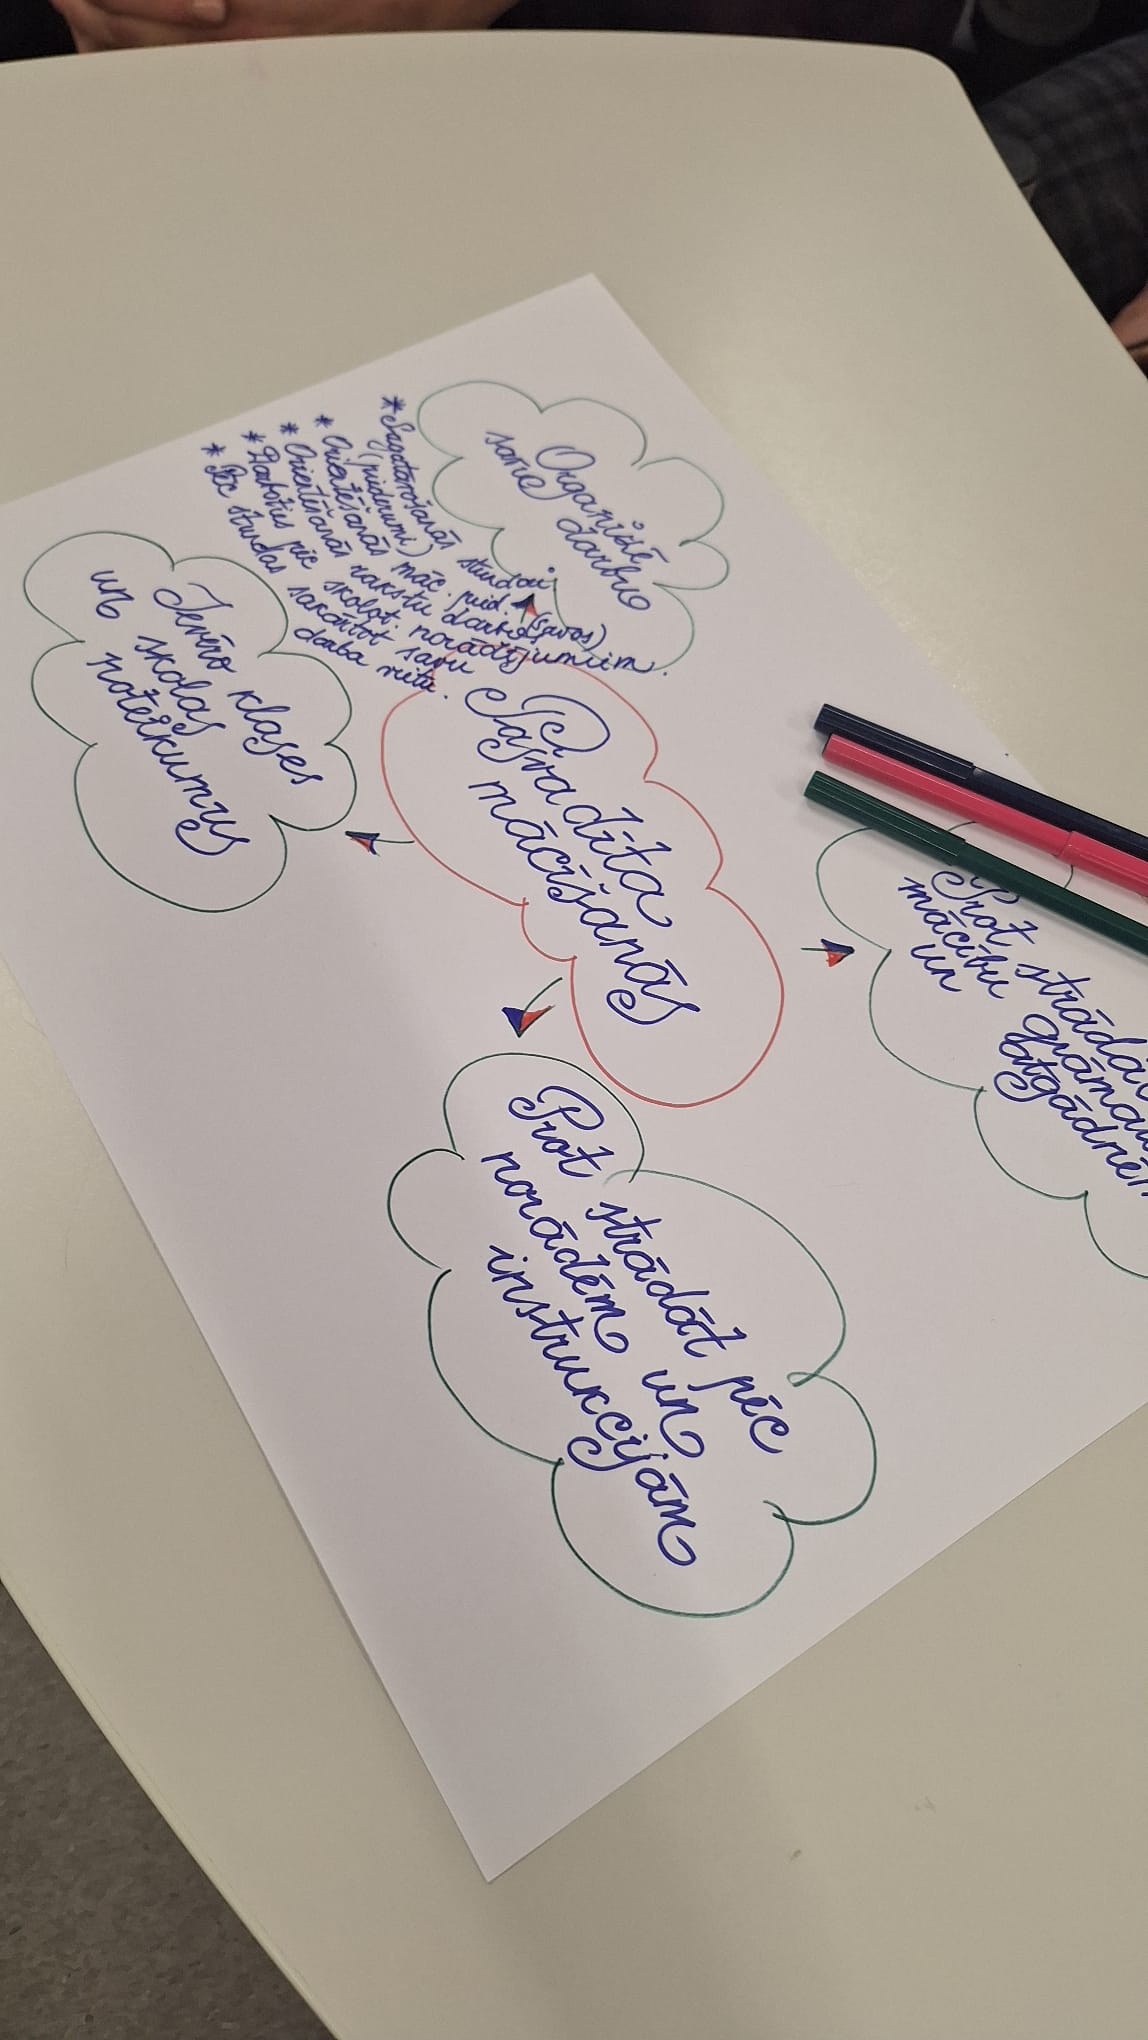 Organizē
savu darbu
* Sagatavošanās stundai
(piederumi)
* Orientēšanās māc. pied. (savos)
* Orientēšanās rakstu darbos
* Darboties pēc skolot. norādījumiem.
* Pēc stundas sakārtot savu
darba vietu.
Ievēro klases
un skolas
noteikumus
Pašvadīta
mācīšanās
Prot strādāt
mācību
un atgādnēm
Prot strādāt pēc
norādēm un
instrukcijām